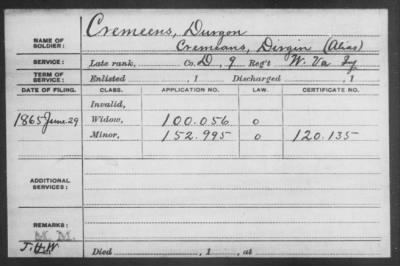 NAME OF SOLDIER: Cremeens, Durgon
Cremeans, Dirgin (Alias)
SERVICE: Late rank, Co. D, 9 Reg't W. Va Inf
TERM OF SERVICE: Enlisted , 1 Discharged , 1
DATE OF FILING. CLASS. APPLICATION NO. LAW. CERTIFICATE NO.
Invalid,
1865 June 29 Widow, 100.056 o
Minor, 152.995 o 120.135
ADDITIONAL SERVICES:
REMARKS:
M. M.
J.H.W. Died , 1 , at